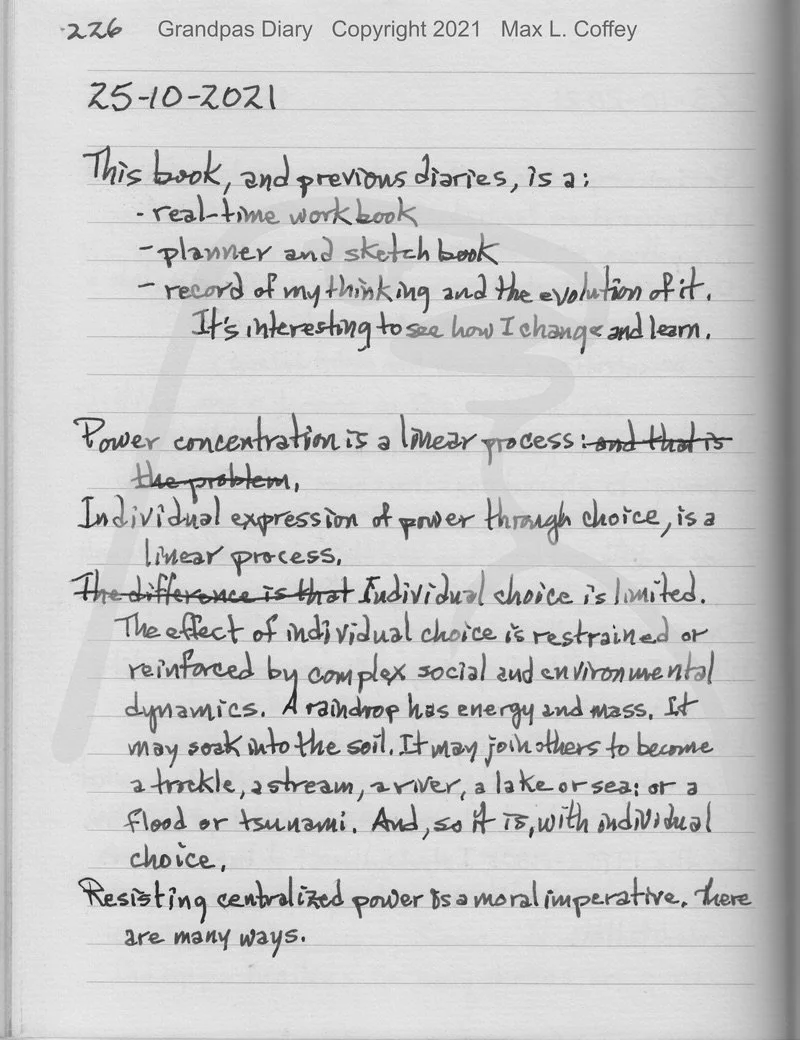 226 Grandpas Diary Copyright 2021 Max L. Coffey
25-10-2021
This book, and previous diaries, is a:
- real-time workbook
- planner and sketch book
- record of my thinking and the evolution of it.
It's interesting to see how I change and learn.
Power concentration is a linear process: and that is
the problem.
Individual expression of power through choice, is a
linear process.
The difference is that Individual choice is limited.
The effect of individual choice is restrained or
reinforced by complex social and environmental
dynamics. A raindrop has energy and mass. It
may soak into the soil. It may join others to become
a trickle, a stream, a river, a lake or sea; or a
flood or tsunami. And, so it is, with individual
choice.
Resisting centralized power is a moral imperative. There
are many ways.